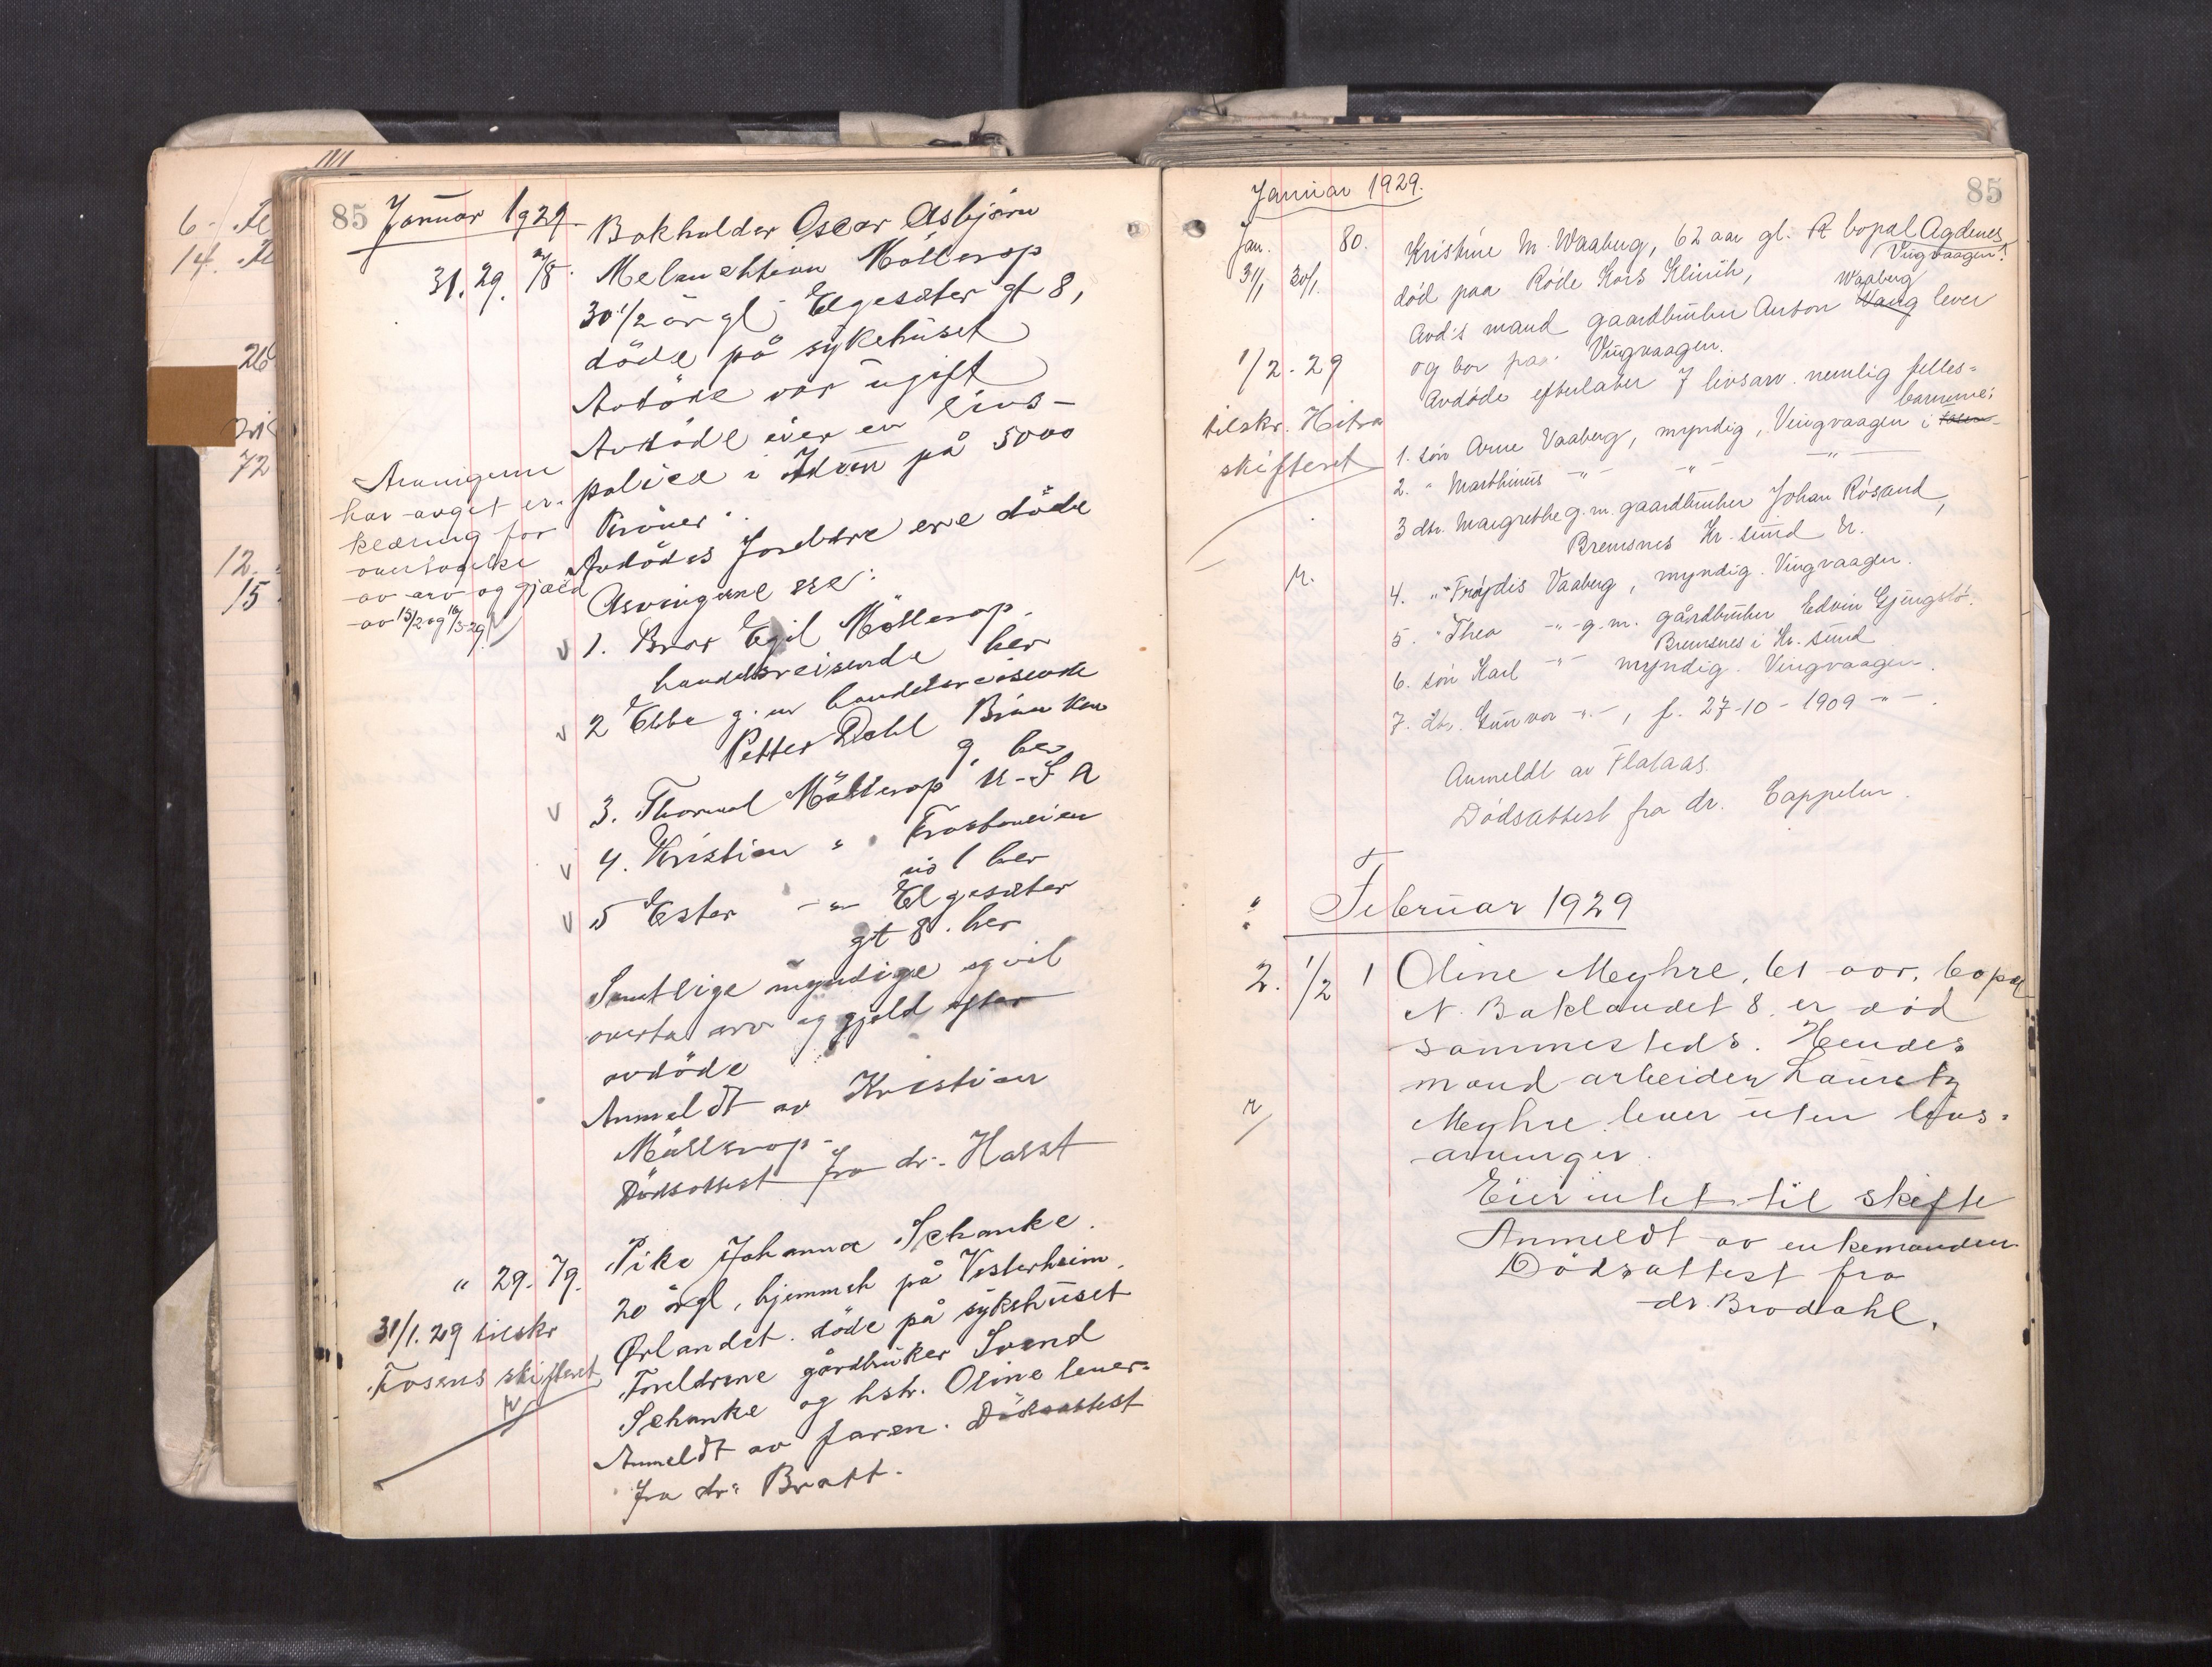 85 Januar 1929
Bokholder Oscar Asbjørn
31. 29. 78. Melanchtion Möllerop
30 1/2 år gl; Elgesæter gt 8,
döde på sykehuset
Avdöde var ugift
Avdöde eier en livs-
police i Idun på 5000
Kroner.
Avdödes foreldre ere döde
Arvingerne ere:
Arvingerne
har avgit er-
klæring for
overtagelse
av arv og gjæld
av 15/2 og 16/5 29.
1. Bror Egil Möllerop.
handelsreisende her
2 Ebba g. m handelsreisende
Petter Dahl
9 her
3. Thorval Möllerop U-S A
4. Kristian " Frostaveien
no 1 her
5 Ester -"- Elgesæter
gt 8. her
Samtlige myndige og vil
overta arv og gjeld efter
avdöde
Anmeldt av Kristian
Möllerop-
Dödsattest fra dr. Harst
" 29. 79. Pike Johanna Schanke.
20 år gl, hjemmeh på Vesterheim.
Ørlandet. döde på sykehuset
31/1. 29 tilskr
Fosens skifteret
Foreldrene gårdbruker Svend
Schanke og hstr. Oline lever-
Anmeldt av faren. Dödsattest
fra dr: Bratt.
Januar 1929. 85
Jan. 80. Kristine M. Waaberg, 62 aar gl. bopal Agdenes
Vingvaagen.
31/1 30/1. død paa Røde Kors Klinik,
Waaberg
Avd's mand gaardbruker Anton Vang lever
og bor paa Vingvaagen.
1/2-29
tilskr. Hitra
skifteret
Avdøde efterlater 7 livsarv. nemlig felles-
barnene:
1. søn Arne Vaaberg, myndig, Vingvaagen i
2. " Marthinus -"- -"- -"-
3 dtr. Margrethe g.m. gaardbruker Johan Røsand,
Bremsnes Kr. sund N.
4. " Frøydis Vaaberg, myndig. Vingvaagen.
5. " Thea -"- g.m. gårdbruker Edvin Gjengstø.
Bremsnes i Kr. sund
6. søn Karl -"- myndig. Vingvaagen.
7. dtr. Gunvor -"-, f. 27-10-1909 -"-.
Anmeldt av Flataas.
Dødsattest fra dr. Cappelen.
Februar 1929
2. 1/2 1 Oline Meyhre, 61 aar, bopæl
N. Baklandet 8, er død
sammesteds. Hendes
mand arbeider Lauretz
Meyhre lever uten livs-
arvinger.
Eier intet til skifte
Anmeldt av enkemanden
Dödsattest fra
dr. Brodahl.